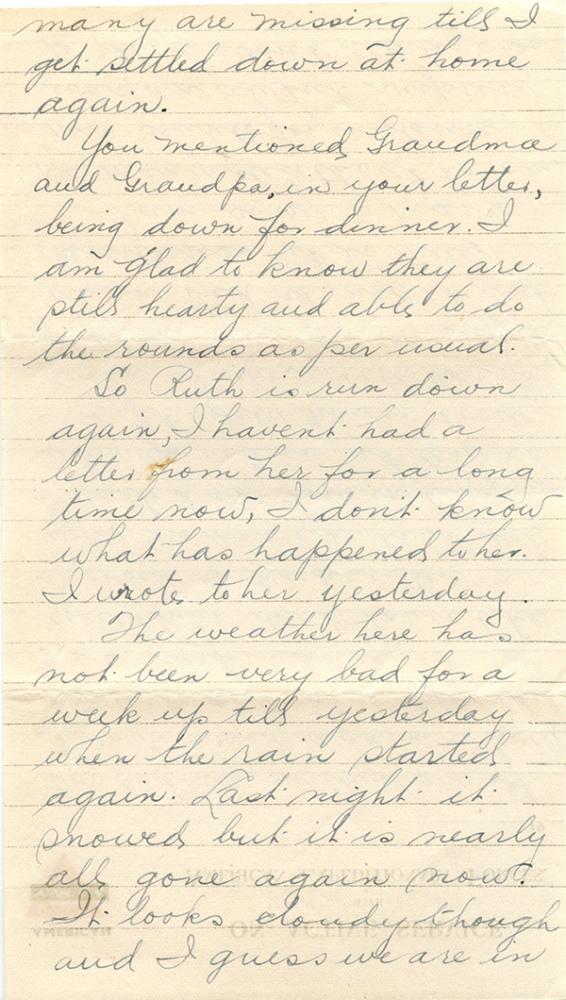 many are missing till I
get settled down at home
again.
You mentioned Grandma
and Grandpa, in your letter,
being down for dinner. I
am glad to know they are
still hearty and able to do
the rounds as per usual.
So Ruth is run down
again, I havent had a
letter from her for a long
time now, I don't know
what has happened to her.
I wrote to her yesterday.
The weather here has
not been very bad for a
week up till yesterday
when the rain started
again. Last night it
snowed but it is nearly
all gone again now.
It looks cloudy though
and I guess we are in
AMERICAN EXPEDITIONARY FORCES
ON ACTIVE SERVICE
AMERICAN